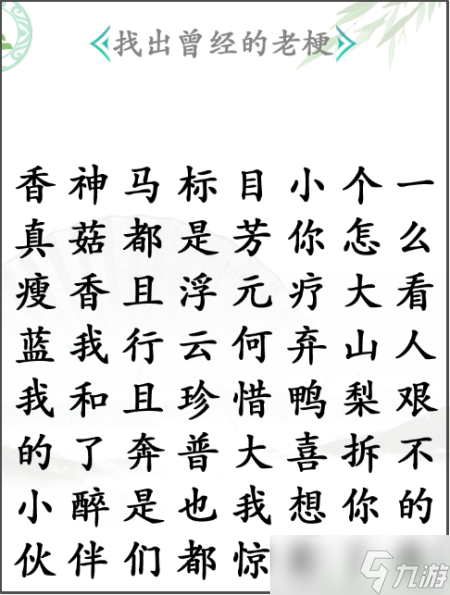 找出曾经的老梗
香神马标目小个一
真菇都是芳你怎么
瘦香且浮元疗大看
蓝我行云何弃山人
我和且珍惜鸭梨艰
的了奔普大喜拆不
小醉是也我想你的
伙伴们都惊
九游